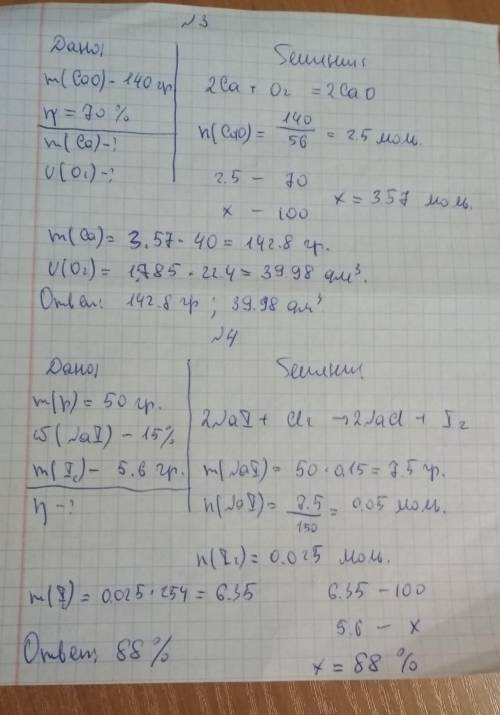 №3
Дано:
m(CaO) - 140 гр
η = 70 %
m(Ca) - ?
V(O₂) - ?
Решение:
2Ca + O₂ = 2CaO
n(CaO) = 140/56 = 2.5 моль.
2.5 - 70
x - 100
x = 3.57 моль.
m(Ca) = 3.57 · 40 = 142.8 гр.
V(O₂) = 1,785 · 22.4 = 39.98 дм³.
Ответ: 142.8 гр ; 39.98 дм³
№4
Дано:
m(р) = 50 гр.
ω(NaI) - 15%
m(I₂) - 5.6 гр.
η - ?
Решение:
2NaI + Cl₂ → 2NaCl + I₂
m(NaI) = 50 · 0.15 = 7.5 гр.
n(NaI) = 7.5/150 = 0.05 моль.
n(I₂) = 0.025 моль.
m(I₂) = 0.025 · 254 = 6.35
6.35 - 100
5.6 - x
x = 88 %
Ответ: 88 %